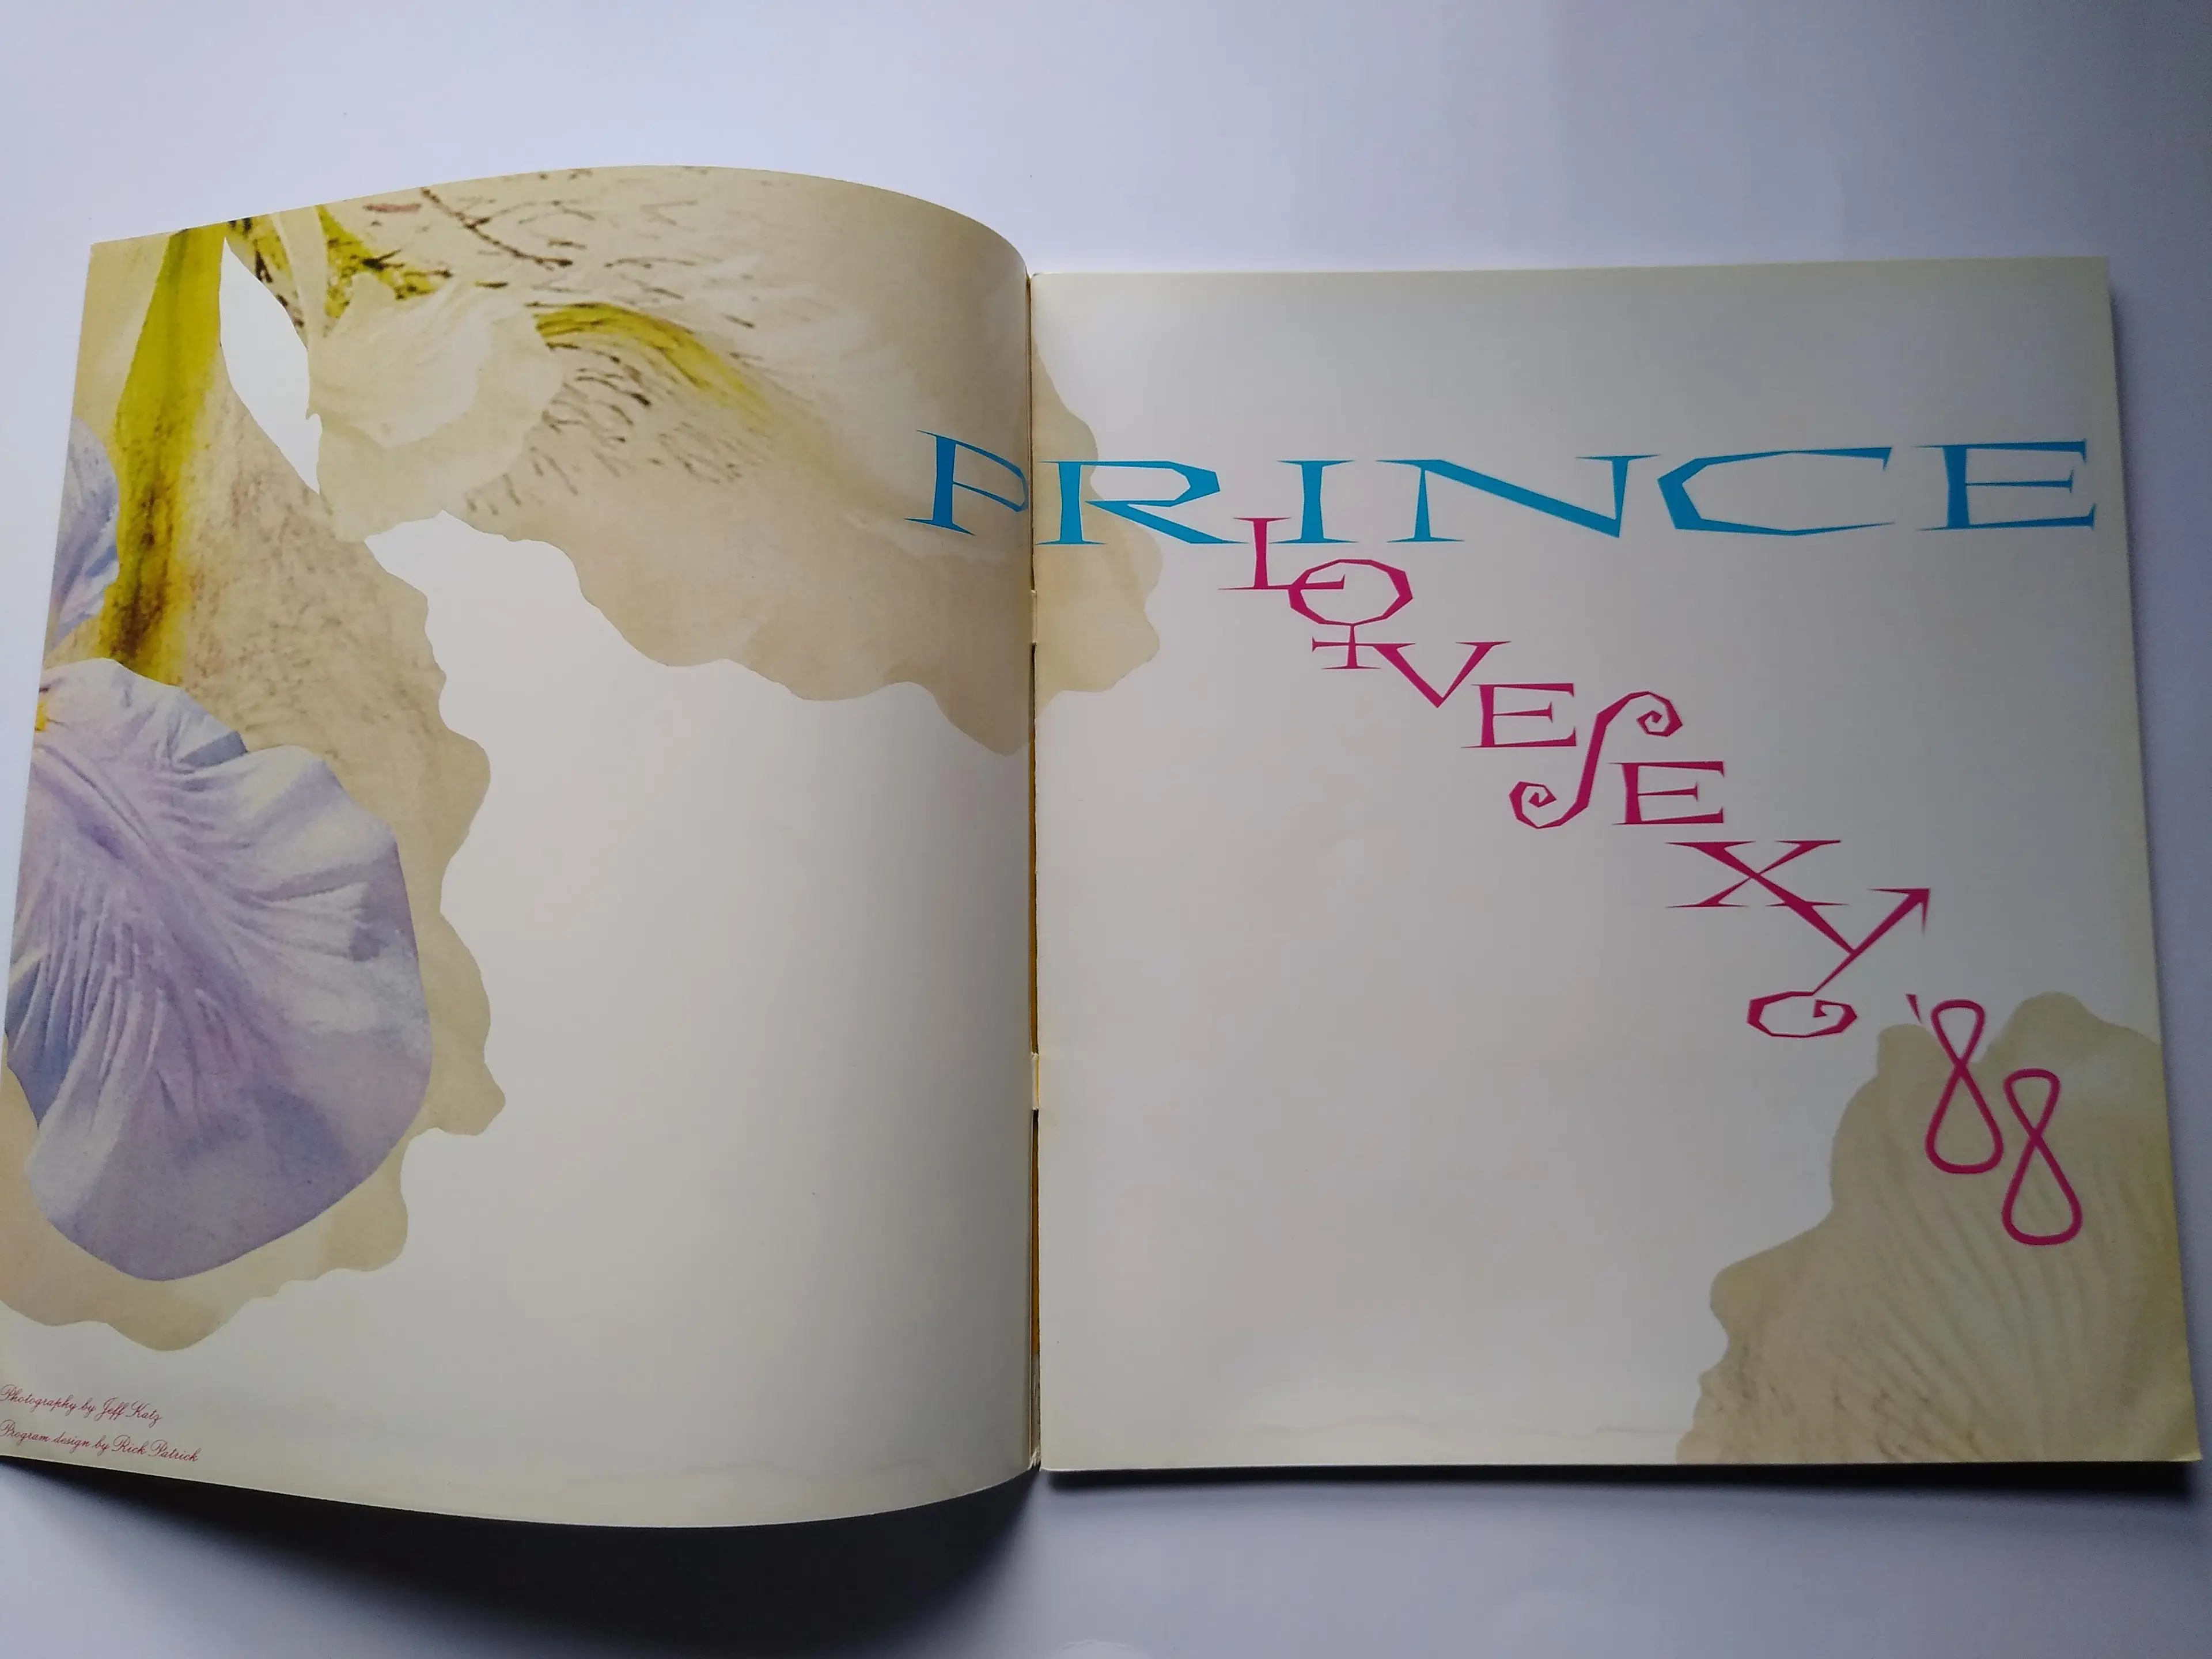 PRINCE
LOVESEXY '88
Photography by Jeff Katz
Program design by Rick Patrick